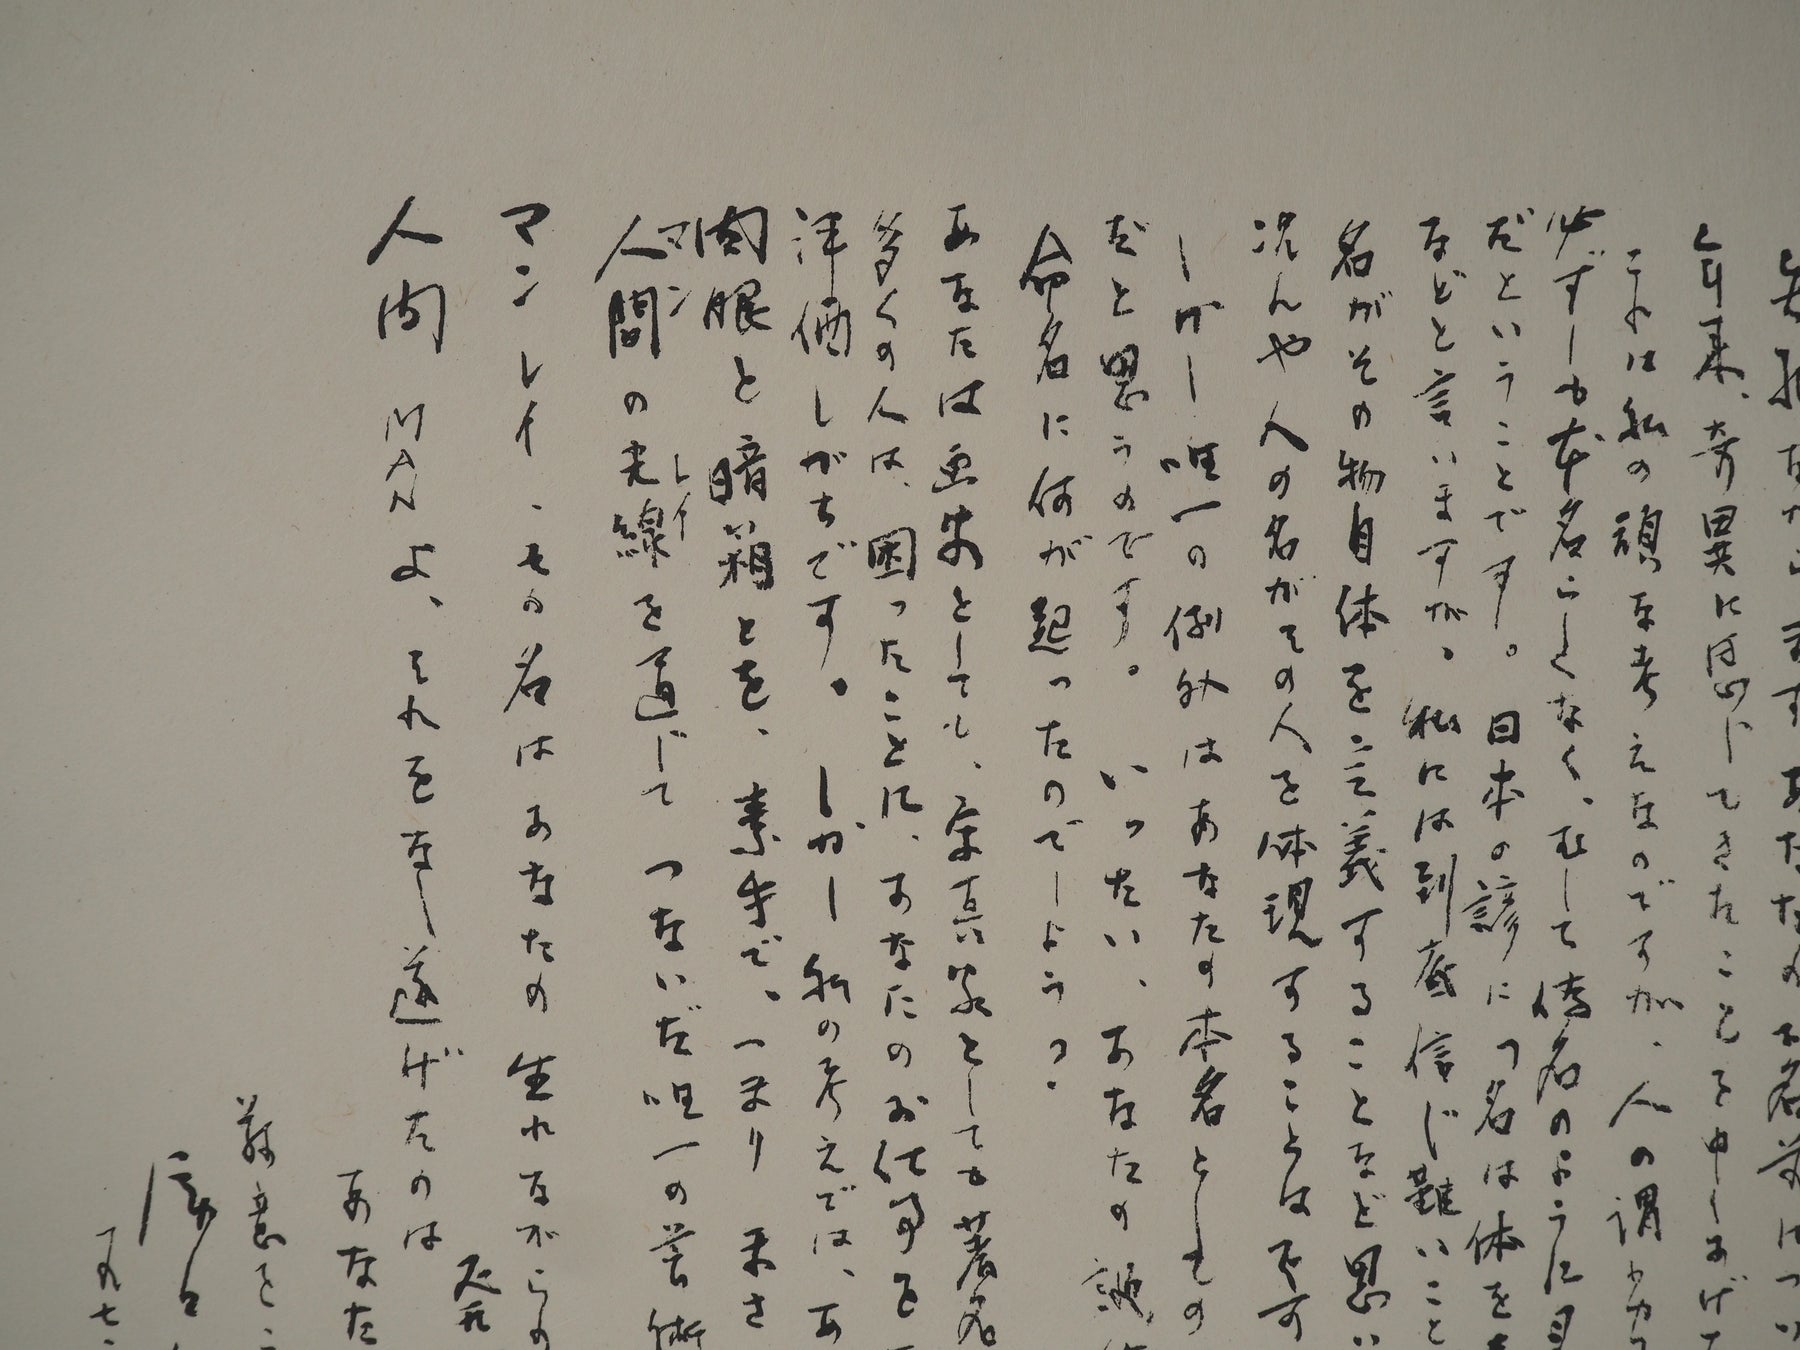 失礼ながらますあなたのお名前につい
年来、奇異に感じてきたことを申しあげて
これは私の頑な考えなのですが、人の謂わゆる
必ずしも本名らしくなく、むしろ偽名のように見
だということです。日本の諺につ名は体を
などと言いますが、私には到底信じ難いこと
名がその物自体を意義することなど思い
況んや人の名がその人を体現することは
しかし唯一の例外はあなたの本名としての
だと思うのです。いったい、あなたの誕
命名に何が起ったのでしょうか。
あなたは画家としても、写真家としても著名
多くの人は、困ったことに、あなたのお仕事を
評価しがちです。しかし私の考えでは、あ
肉眼と暗箱とを、素手で、つまり まさ
人間マンの光線レイを通じて つないだ唯一の芸術
マン レイ、その名は あなたの 生れながらの
発
人間 MAN よ、それをなし遂げたのは
あなた
敬意を
一九七